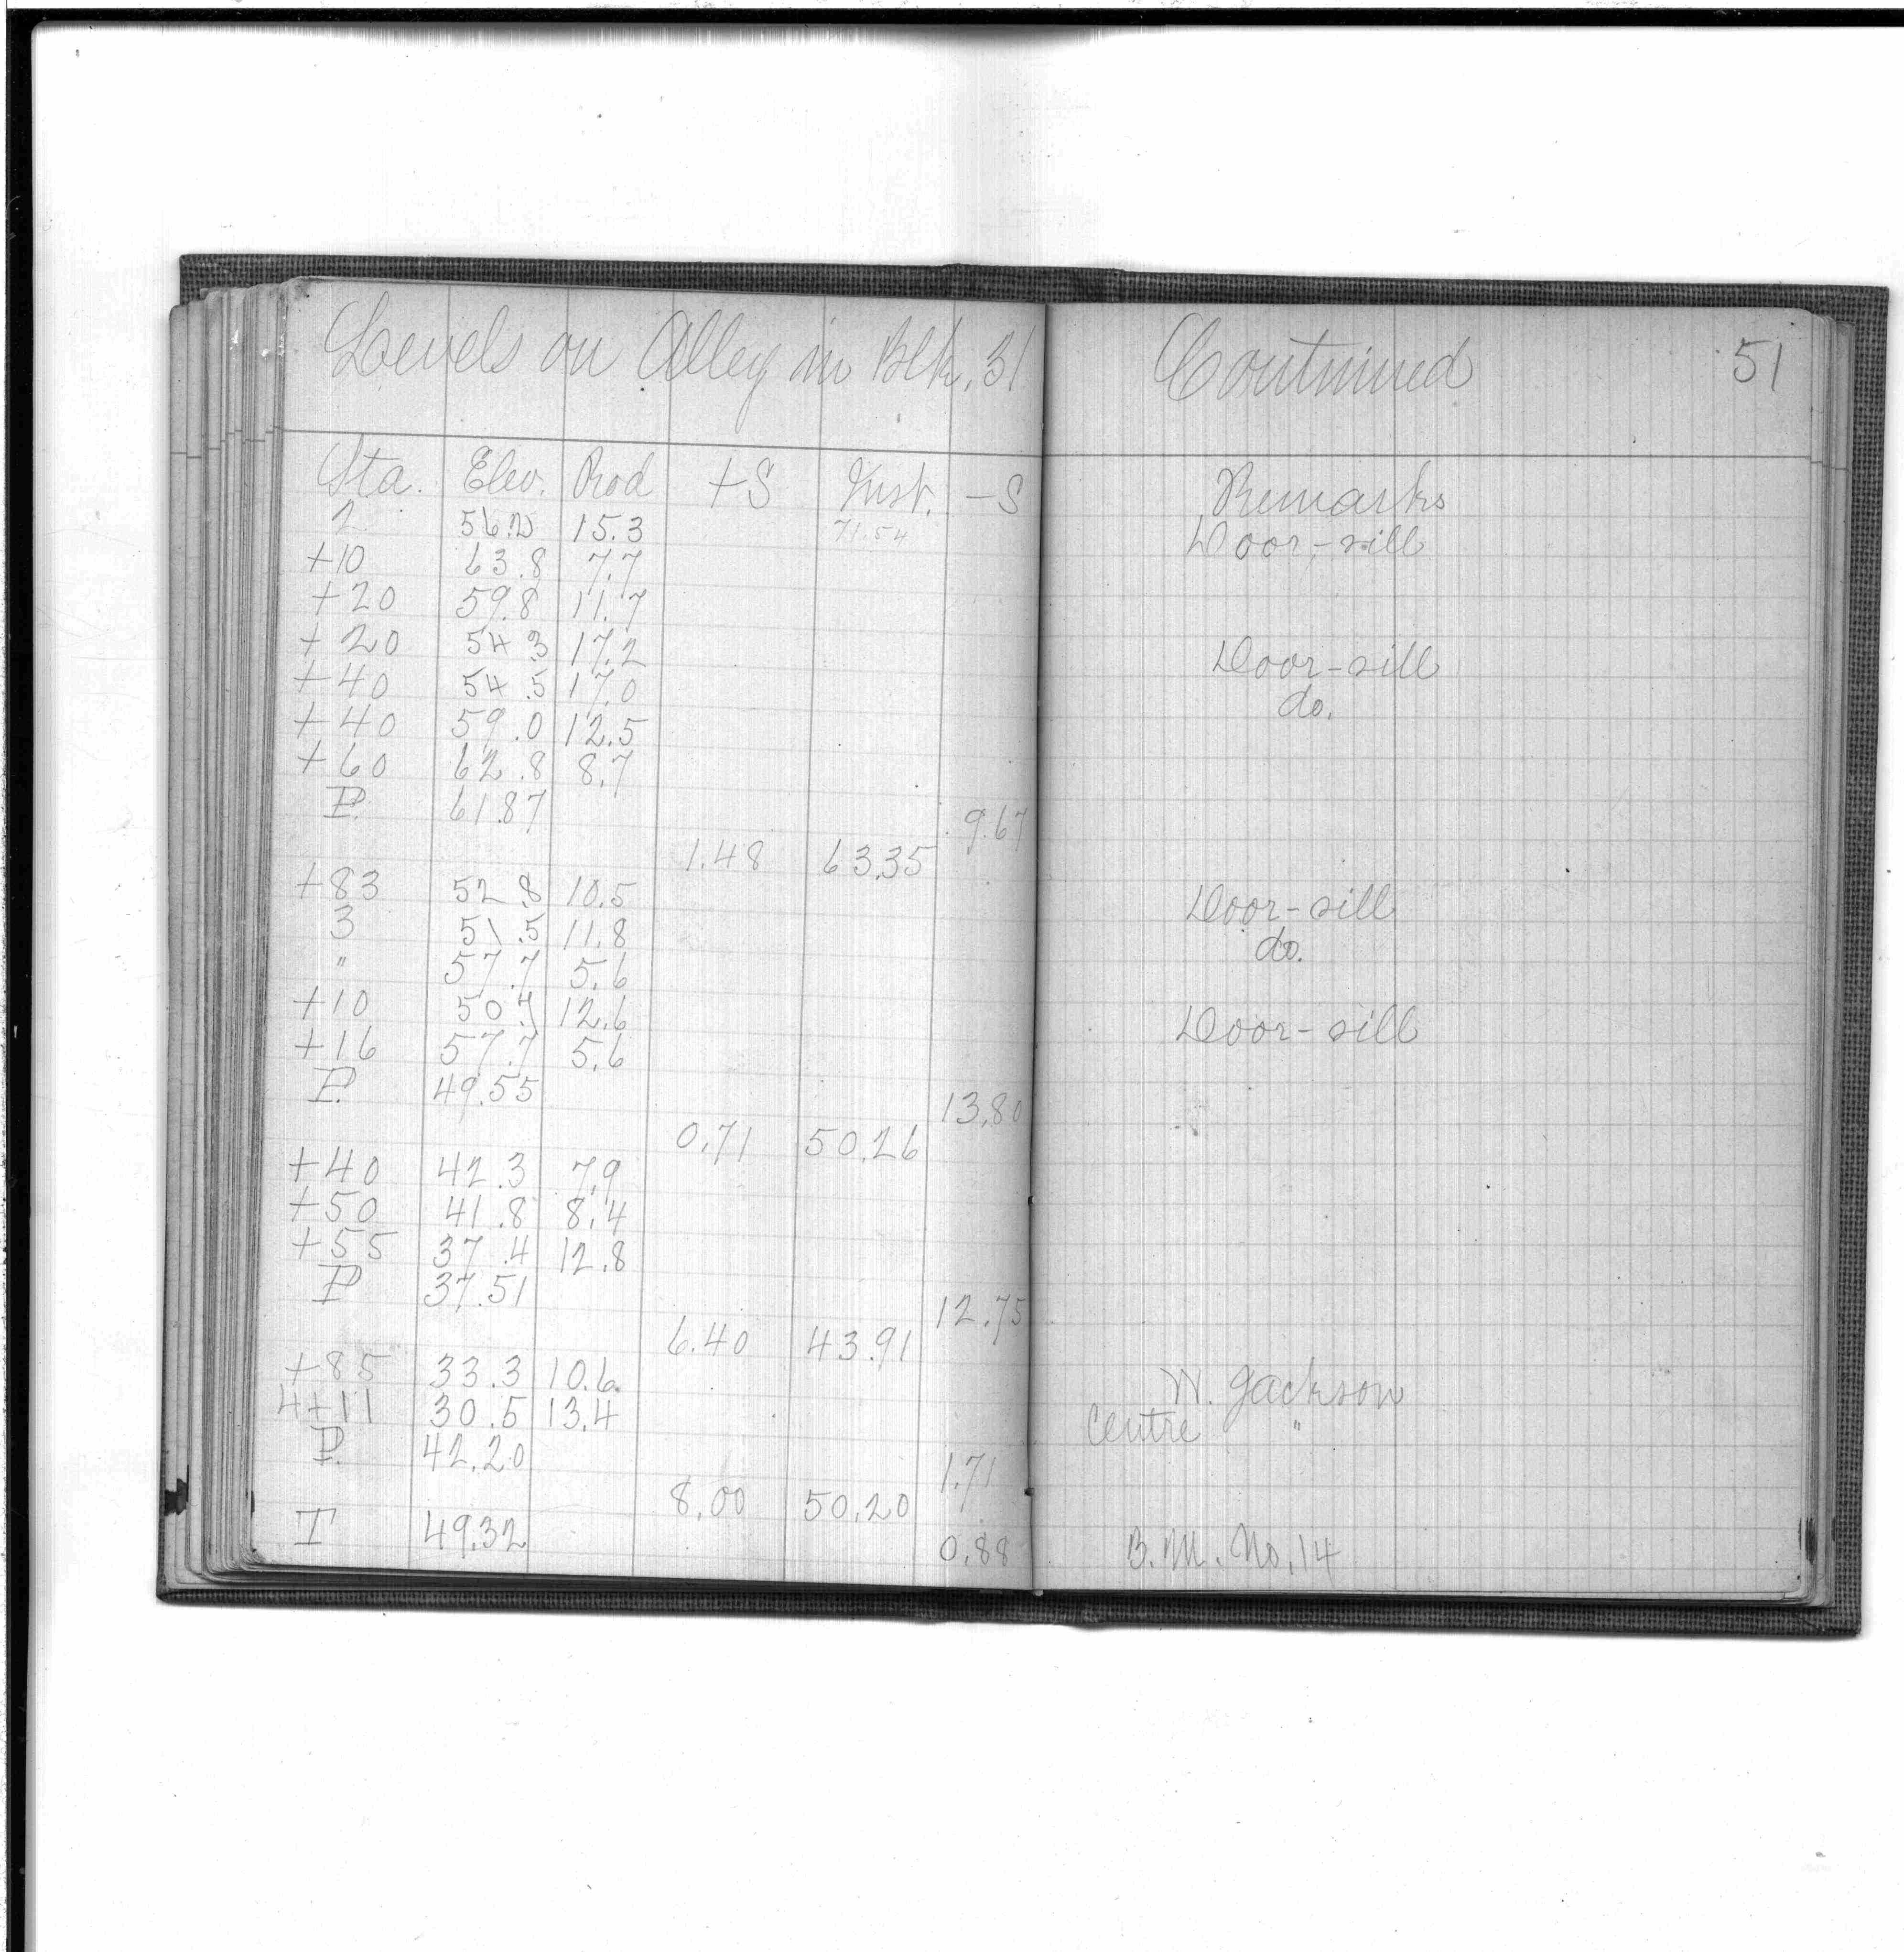 Levels on Alley in Blk. 31 Continued 51
Sta. Elev. Rod +S Inst. -S Remarks
2 56.2 15.3 71.54 Door-sill
+10 63.8 7.7
+20 59.8 11.7
+20 54.3 17.2 Door-sill
+40 54.5 17.0 do.
+40 59.0 12.5
+60 62.8 8.7
P. 61.87 9.67
1.48 63.35
+83 52.8 10.5 Door-sill
3 51.5 11.8 do.
" 57.7 5.6
+10 50.7 12.6 Door-sill
+16 57.7 5.6
P. 49.55 13.80
0.71 50.26
+40 42.3 7.9
+50 41.8 8.4
+55 37.4 12.8
P 37.51 12.75
6.40 43.91
+85 33.3 10.6 N. Jackson
4+11 30.5 13.4 Centre "
P. 42.20 1.71
8.00 50.20
T 49.32 0.88 B.M. No. 14